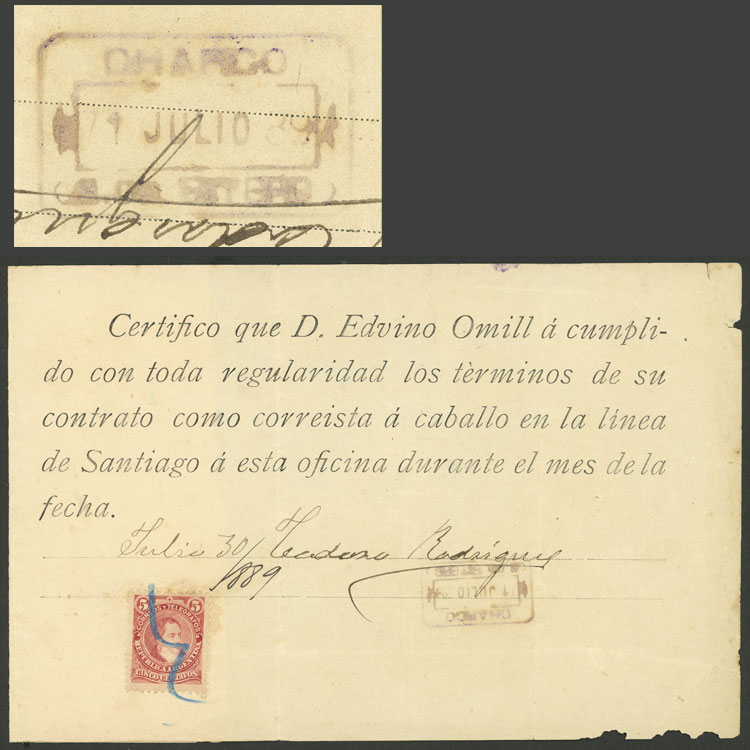 CHARCO
1 JULIO 89
Certifico que D. Edvino Omill á cumpli-
do con toda regularidad los tèrminos de su
contrato como correista á caballo en la línea
de Santiago á esta oficina durante el mes de la
fecha.
Julio 30/ Teodoro Rodríguez
1889
1 JULIO
CHARCO
5 5
CORREOS Y TELEGRAFOS
REPUBLICA ARGENTINA
CINCO CENTAVOS